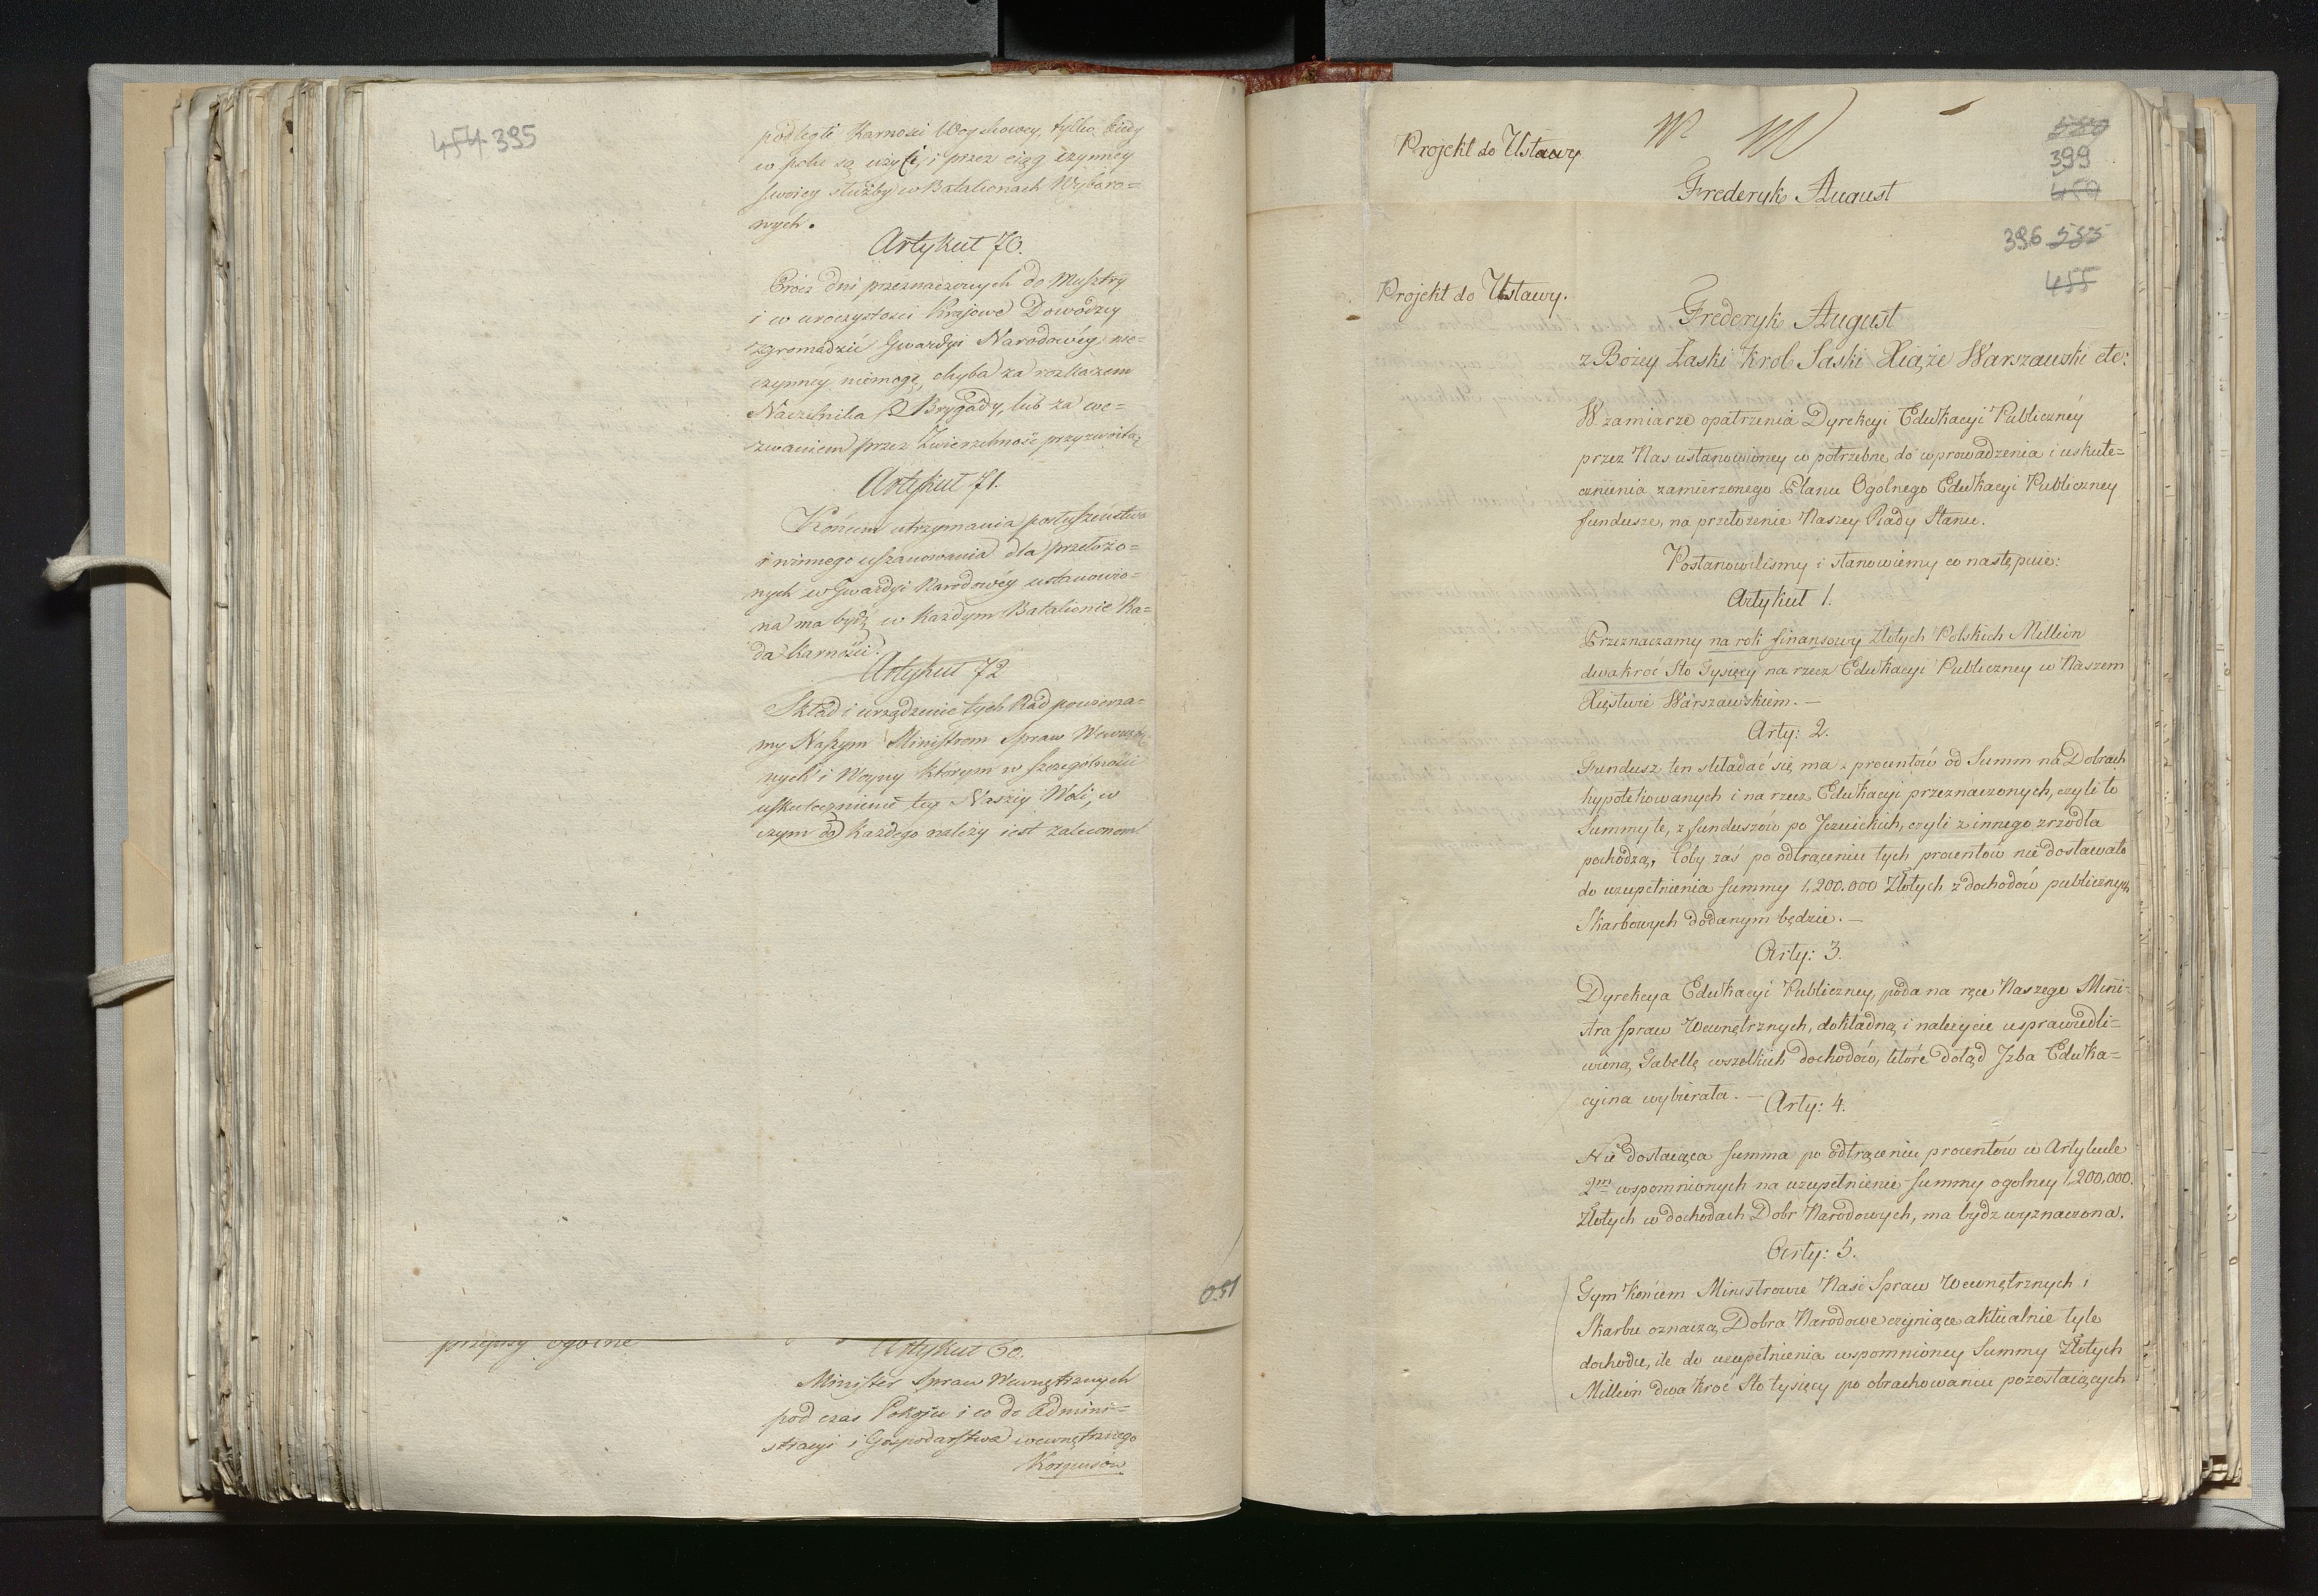 454 395
podlegli Karności Woyskowey, tylko kiedy
w polu są użyci, i przez ciąg czynney
swoiey służby w Batalionach Wybora=
nych.
Artykuł 70.
Prócz dni przeznaczonych do Musztry
i w uroczystości Krajowe Dowódzcy
zgromadzić Gwardyi Narodowéy nie=
czynnéy niemogą, chyba za rozkazem
Naczelnika Brygady, lub za we=
zwaniem przez Zwierzchność przyzwoitą
Artykuł 71.
Końcem utrzymania posłuszeństwa
i winnego uszanowania dla przełożo=
nych w Gwardyi Narodowéy ustanowio=
na ma bydź w każdym Batalionie Ra=
da Karności.
Artykuł 72
Skład i urządzenie tych Rad powierza=
my Naszym Ministrom Spraw Wewnętrz
nych i Woyny którym w szczególności
uskutecznienie tey Naszéy Woli, w
czym do każdego należy iest zalecone
przepisy ogólne
Artykuł 60.
Minister Spraw Wewnętrznych
pod czas Pokoju i co do Admini=
stracyi i Gospodarstwa wewnętrznego
Korpusów
051
Projekt do Ustawy
399
Frederyk August
396 535
455
Projekt do Ustawy.
Frederyk August
z Bożey Łaski Krol Saski Xiąże Warszawski etc:
W zamiarze opatrzenia Dyrekcyi Edukacyi Publicznéy
przez Nas ustanowioney w potrzebne do wprowadzenia i uskute=
cznienia zamierzonego Planu Ogólnego Edukacyi Publiczney
fundusze, na przełożenie Naszey Rady Stanu.
Postanowilismy i stanowiemy co następuie:
Artykuł 1.
Przeznaczamy na rok finansowy Złotych Polskich Million
dwakroć Sto Tysięcy na rzecz Edukacyi Publiczney w Naszem
Xięstwie Warszawskiem. —
Arty: 2.
Fundusz ten składać się ma z procentów od Summ na Dobrach
hypotekowanych i na rzecz Edukacyi przeznaczonych, czyli to
Summy te, z funduszów po Jezuickich, czyli z innego zrzodła
pochodzą, Coby zaś po odtrąceniu tych procentów nie dostawało
do uzupełnienia summy 1,200.000 Złotych z dochodów publicznych
Skarbowych dodanym będzie. —
Arty: 3.
Dyrekcya Edukacyi Publiczney, poda na ręce Naszego Mini=
stra Spraw Wewnętrznych, dokładną i należycie usprawiedli=
wioną Tabellę wszelkich dochodów, które dotąd Jzba Eduka=
cyina wybierała. —
Arty: 4.
Nie dostaiąca summa po odtrąceniu procentów w Artykule
2m wspomnionych na uzupełnienie summy ogolney 1,200,000.
Złotych w dochodach Dobr Narodowych, ma bydź wyznaczona.
Arty: 5.
Tym końcem Ministrowie Nasi Spraw Wewnętrznych i
Skarbu oznaczą Dobra Narodowe czyniące aktualnie tyle
dochodu, ile do uzupełnienia wspomnioney Summy Złotych
Million dwa kroć Sto tysięcy po obrachowaniu pozostaiących